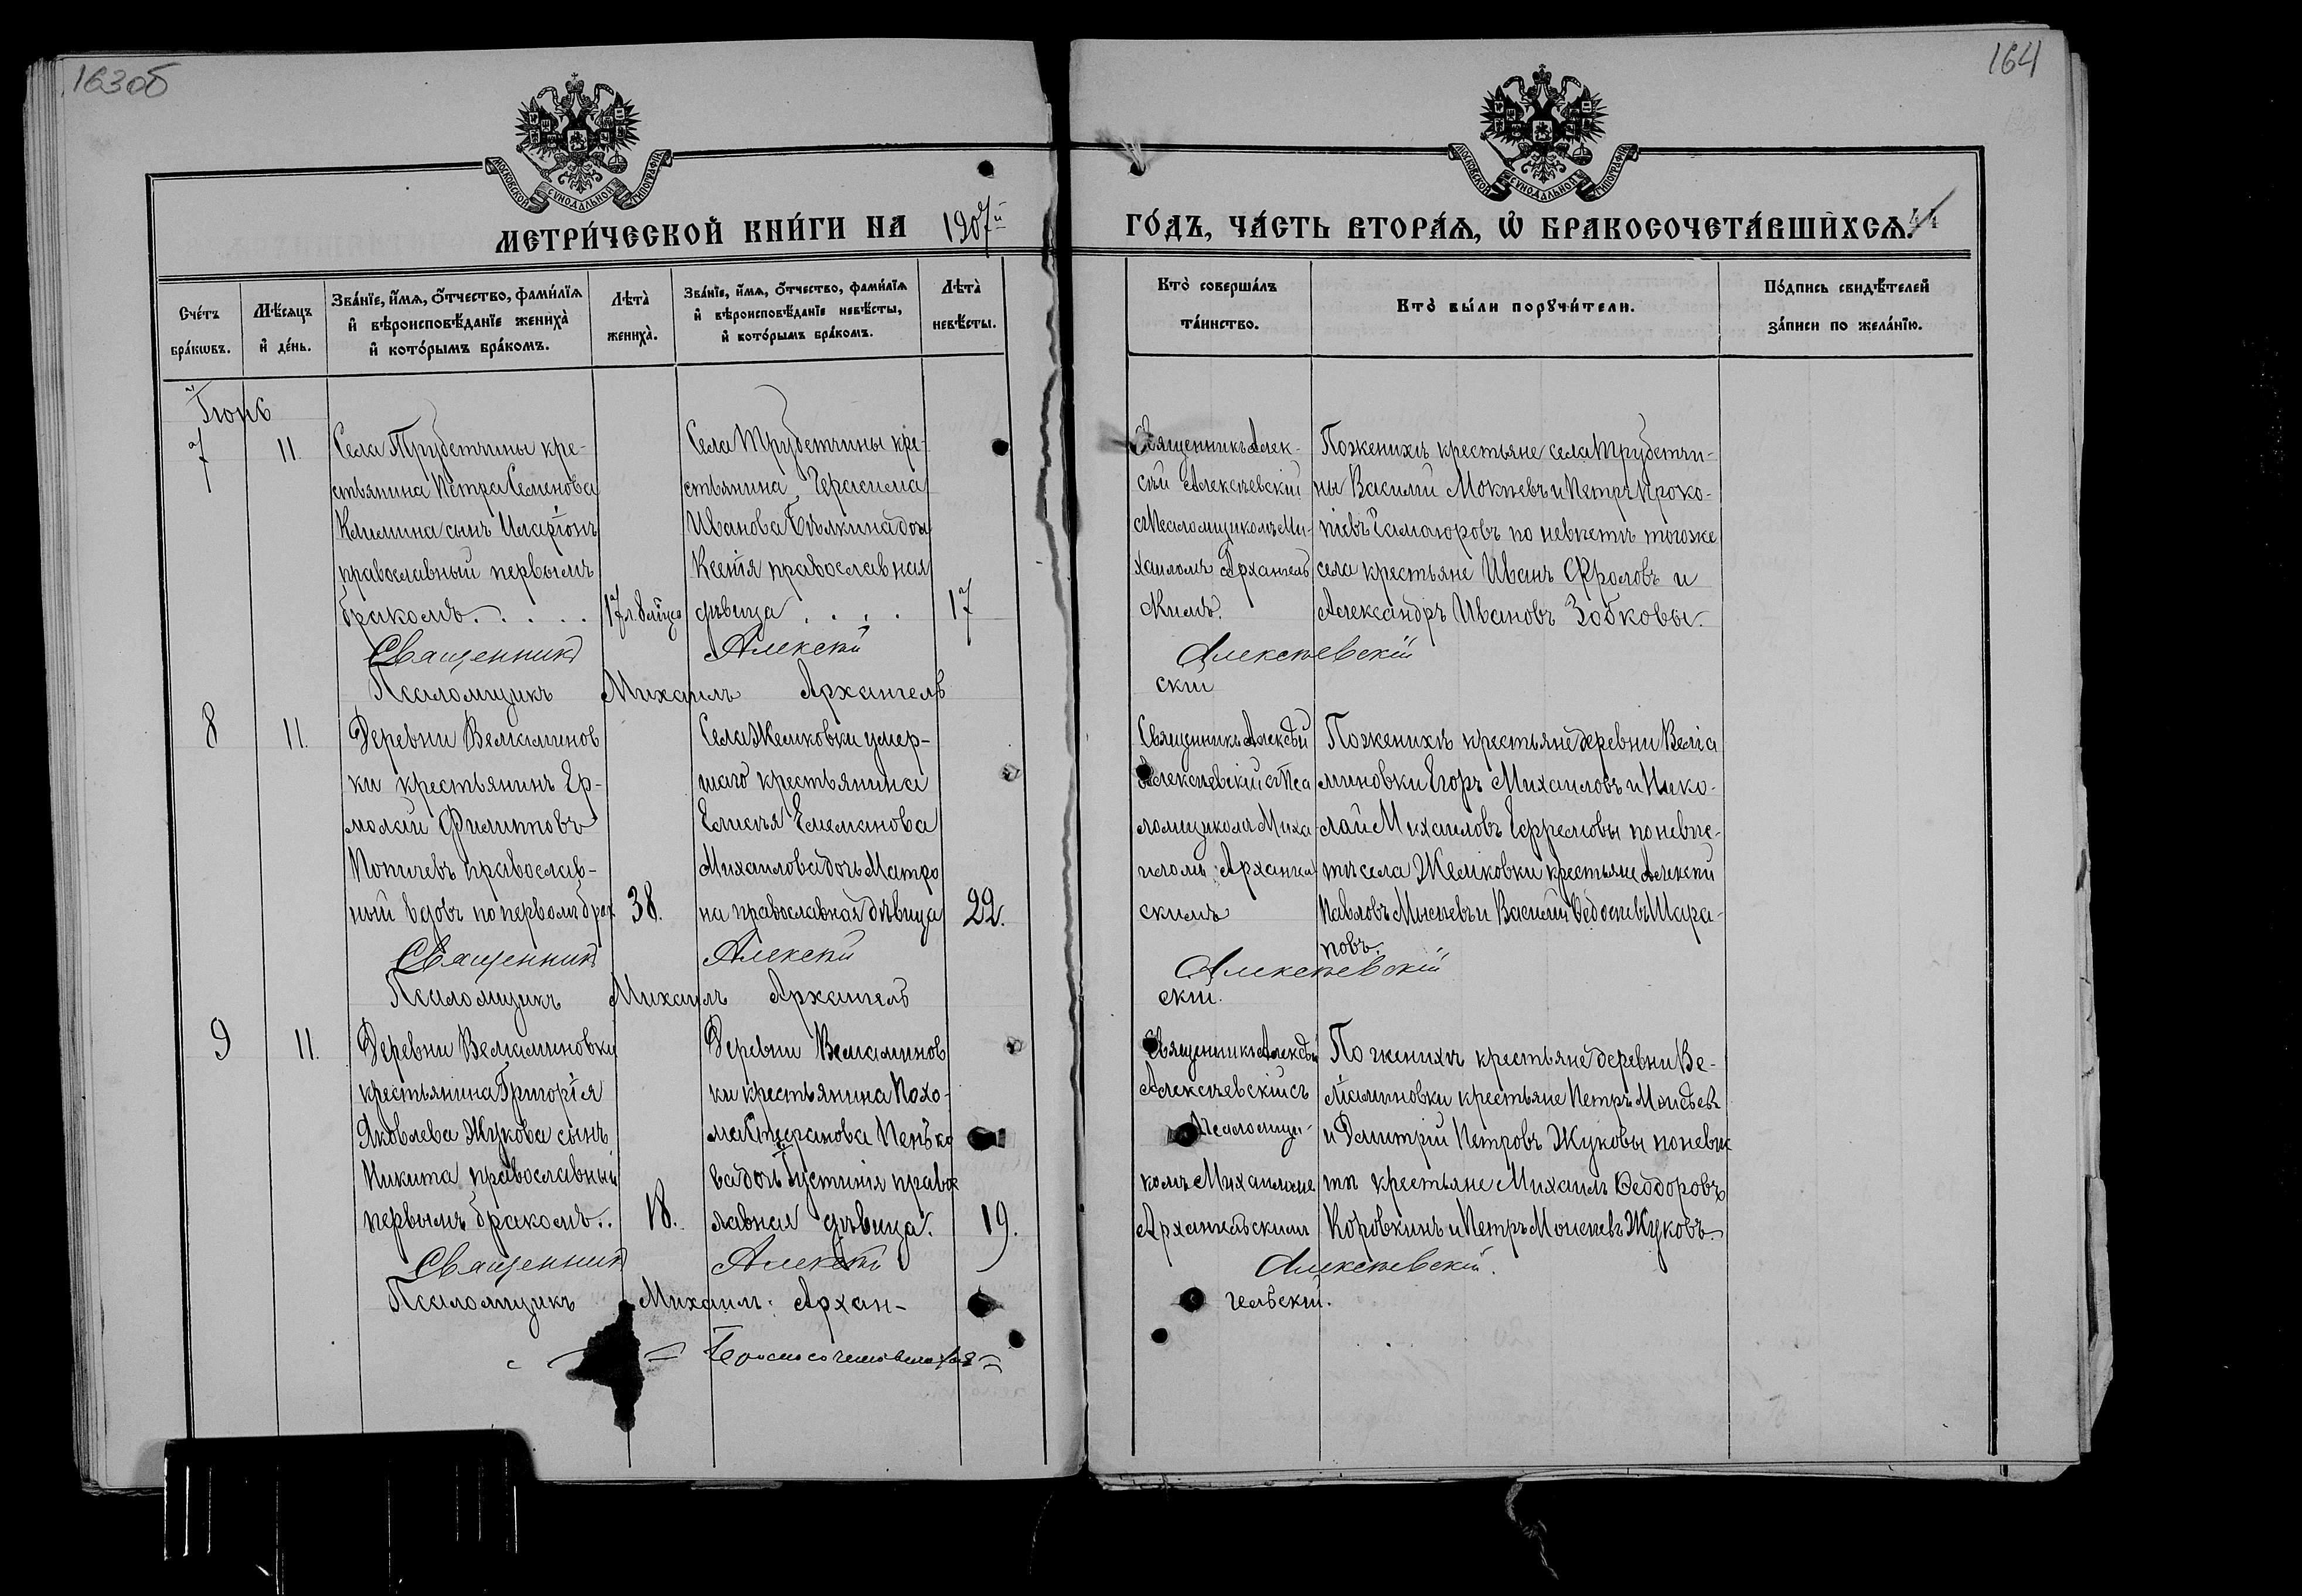 163об
164
МОСКОВСКОЙ СУНОДАЛЬНОЙ ТИПОГРАФІИ
МОСКОВСКОЙ СУНОДАЛЬНОЙ ТИПОГРАФІИ
МЕТРИ́ЧЕСКОЙ КНИ́ГИ НА 1907й
ГО́ДЪ, ЧА́СТЬ ВТОРА́Ѧ, Ѡ҆ БРАКОСОЧЕТА́ВШИХСѦ.
44
Сче́тъ
бра́кѡвъ.
Мѣ́сѧцъ
и҆ де́нь.
Зва́нїе, и҆́мѧ, ѻ҆́тчество, фами́лїѧ
и҆ вѣроисповѣ́данїе жениха̀
и҆ кото́рымъ бра́комъ.
Лѣта̀
жениха̀.
Зва́нїе, и҆́мѧ, ѻ҆́тчество, фами́лїѧ
и҆ вѣроисповѣ́данїе невѣ́сты,
и҆ кото́рымъ бра́комъ.
Лѣта̀
невѣ́сты.
Кто̀ соверша́лъ
та́инство.
Кто̀ бы́ли порꙋчи́тели.
По́дпись свидѣ́телей
за́писи по жела́нїю.
Іюнь
7
11.
Села Трубетчины кре-
стьянина Петра Семенова
Климина сынъ Иларіонъ
православный первымъ
бракомъ. . . . .
17
Села Трубетчины кре-
стьянина Герасима
Иванова Бѣлкина дочь
Ксенія православная
дѣвица . . . .
17
Священникъ Алек-
сѣй Алексѣевскій
съ Псаломщикомъ Ми-
хаиломъ Архангель
скимъ.
По женихѣ крестьяне села Трубетчи-
ны Василій Мокѣевъ и Петръ Проко-
піевъ Гамаюровъ по невѣстѣ тогоже
села крестьяне Иванъ Фроловъ и
Александръ Ивановъ Зобковы.
Священникъ Алексѣй Алексѣевскій
Псаломщикъ Михаилъ Архангель
скій
8
11.
Деревни Вельяминов
ки крестьянинъ Ер-
молай Филипповъ
Попичевъ православ-
ный вдовъ по первомъ брак
38.
Села Жемковки умер-
шаго крестьянина
Елисѣя Емельянова
Михайлова дочь Матро
на православная дѣвица
22.
Священникъ Алексѣй
Алексѣевскій съ Пса
ломщикомъ Миха
иломъ Архангел
скимъ
По женихѣ крестьяне деревни Велья
миновки Егоръ Михаиловъ и Нико-
лай Михаиловъ Ефремовы по невѣс-
тѣ села Жемковки крестьяне Алексѣй
Павловъ Мысѣевъ и Василій Ѳедосѣевъ Шара-
повъ.
Священникъ Алексѣй Алексѣевскій
Псаломщикъ Михаилъ Архангель
скій.
9
11.
Деревни Вельяминовки
крестьянина Григорія
Яковлева Жукова сынъ
Никита православный
первымъ бракомъ..
18.
Деревни Вельяминов
ки крестьянина Похо-
ма Стефанова Пенько
ва дочь Іустинія правос
лавная дѣвица.
19.
Священникъ Алексѣй
Алексѣевскій съ
Псаломщи-
комъ Михаиломъ
Архангельскимъ
По женихѣ крестьяне деревни Ве-
льяминовки крестьяне Петръ Моисѣевъ
и Димитрій Петровъ Жуковы по невѣс
тѣ крестьяне Михаилъ Ѳеодоровъ
Коровкинъ и Петръ Моисѣевъ Жуковъ.
Священникъ Алексѣй Алексѣевскій.
Псаломщикъ Михаилъ Архан-
гельскій.